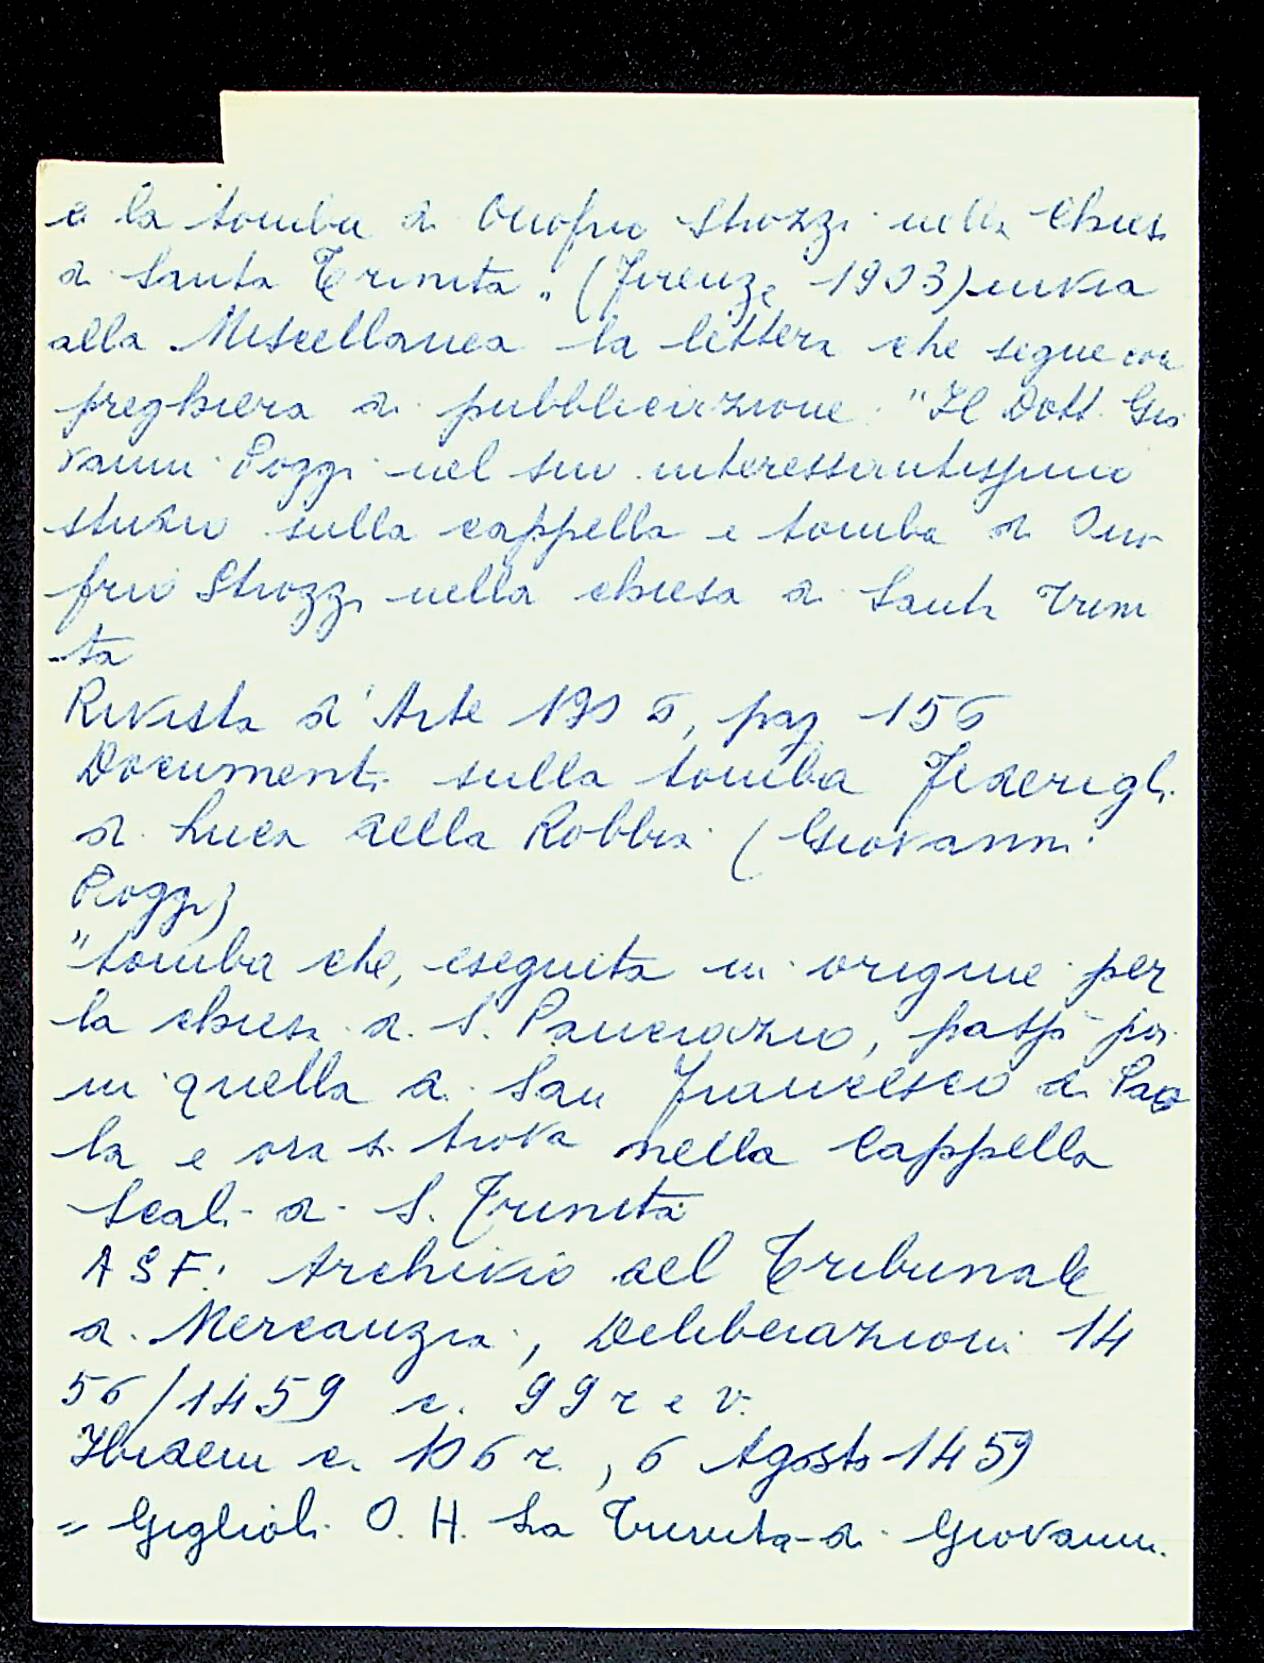 e la tomba di Onofrio Strozzi nella Chiesa
di Santa Trinita" (Firenze 1903) invia
alla Miscellanea la lettera che segue con
preghiera di pubblicazione "Il Dott. Gio
vanni Poggi nel suo interessantissimo
studio sulla cappella e tomba di Ono
frio Strozzi nella chiesa di Santa Trini
ta
Rivista d'Arte 1906, pag 156
Documenti sulla tomba Federighi
di Luca della Robbia (Giovanni
Poggi)
"tomba che, eseguita in origine per
la chiesa di S. Pancrazio, passò poi
in quella di San Francesco di Pao
la e ora si trova nella Cappella
Scali di S. Trinita
ASF: Archivio del Tribunale
di Mercanzia, Deliberazioni 14
56/1459 c. 99 r e v.
Ibidem c. 106 r., 6 Agosto 1459
= Giglioli O. H. La Trinita di Giovanni